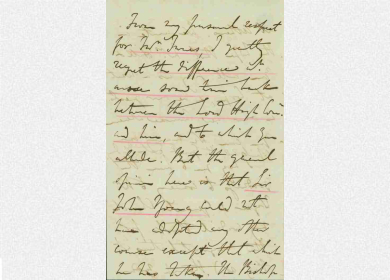 From my personal respect
for Mr. Innes, I greatly
regret the difference wh.
arose some time back
between the Lord High Com.
and him, and to which you
allude. But the general
opinion here is that Sir
John Young could not
have adopted any other
course except that which
he has taken. The Bishop